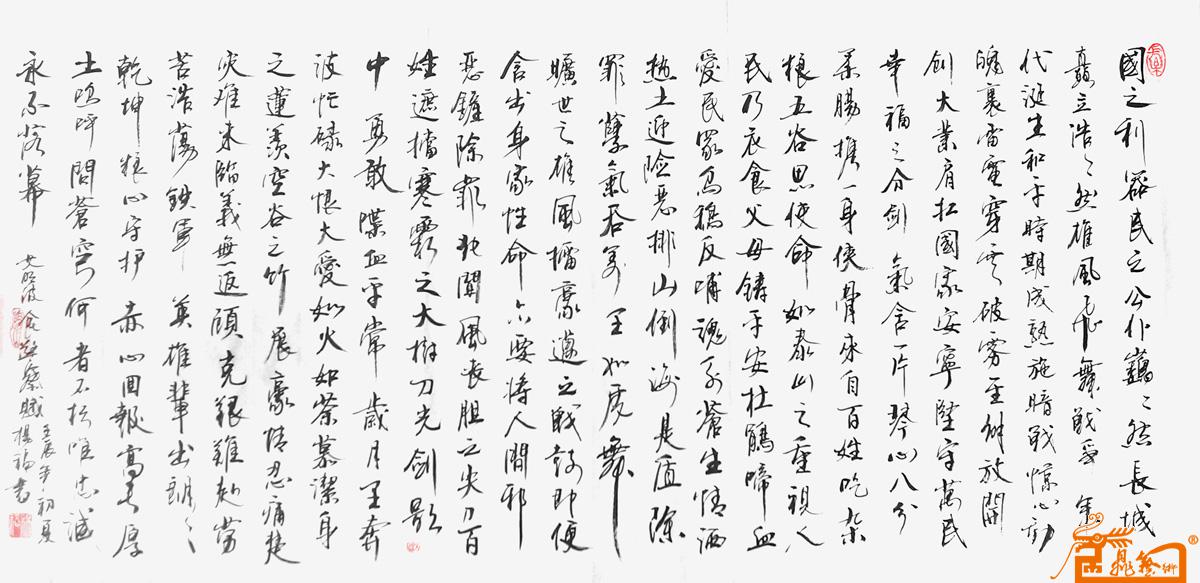 國之利器民之公仆巍々然長城
矗立浩々然雄風飛舞戰爭年
代诞生和平時期成熟施暗戰惊心動
魄裹雷電穿雲破雾至解放開
創大業肩扛國家安寧陸守萬民
幸福三分劍氣含一片琴心八分
柔腸携一身俠骨來自百姓吃杂
粮五谷思使命如泰山之重視人
民乃衣食父母鑄平安杜鵑啼血
愛民眾烏鴉反哺魂系蒼生情洒
热土迎險惡排山倒海是盾除
罪孽氣吞萬里如虎舞
曠世之雄風擂豪邁之戰鼓即便
舍出身家性命亦要将人間邪
惡鏟除霏秋闘風長胆之尖刀百
姓遮擋寒霜之大樹刀光劍影
中勇敢喋血平常歲月里奔
波忙碌大恨大愛如火如荼慕潔身
之蓮羨空谷之竹展豪情忍痛楚
災难来臨義無返顧克艱難赴勞
苦浩蕩鉄軍英雄輩出朗々
乾坤粮心守护赤心回報高天厚
土嗚呼問蒼穹何者不朽唯忠誠
永不落幕
警察賦壬辰年初夏
楊福書